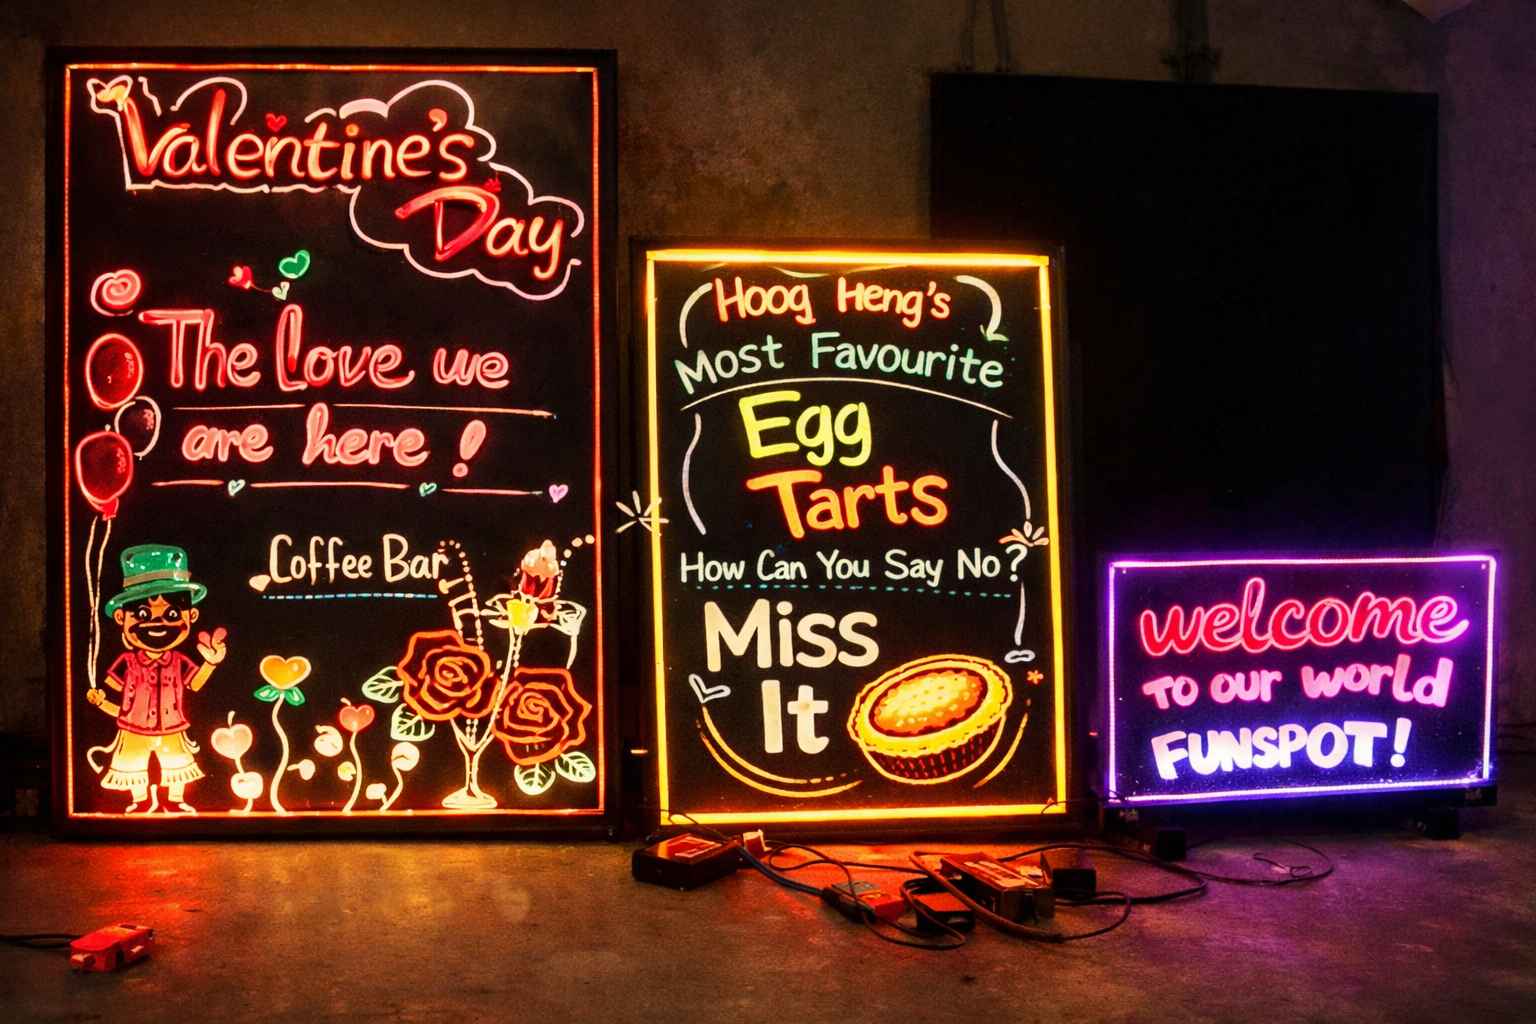 Valentine's
Day
The Love we
are here!
Coffee Bar
Hoog Heng's
Most Favourite
Egg
Tarts
How Can You Say No?
Miss
It
welcome
To our world
FUNSPOT!